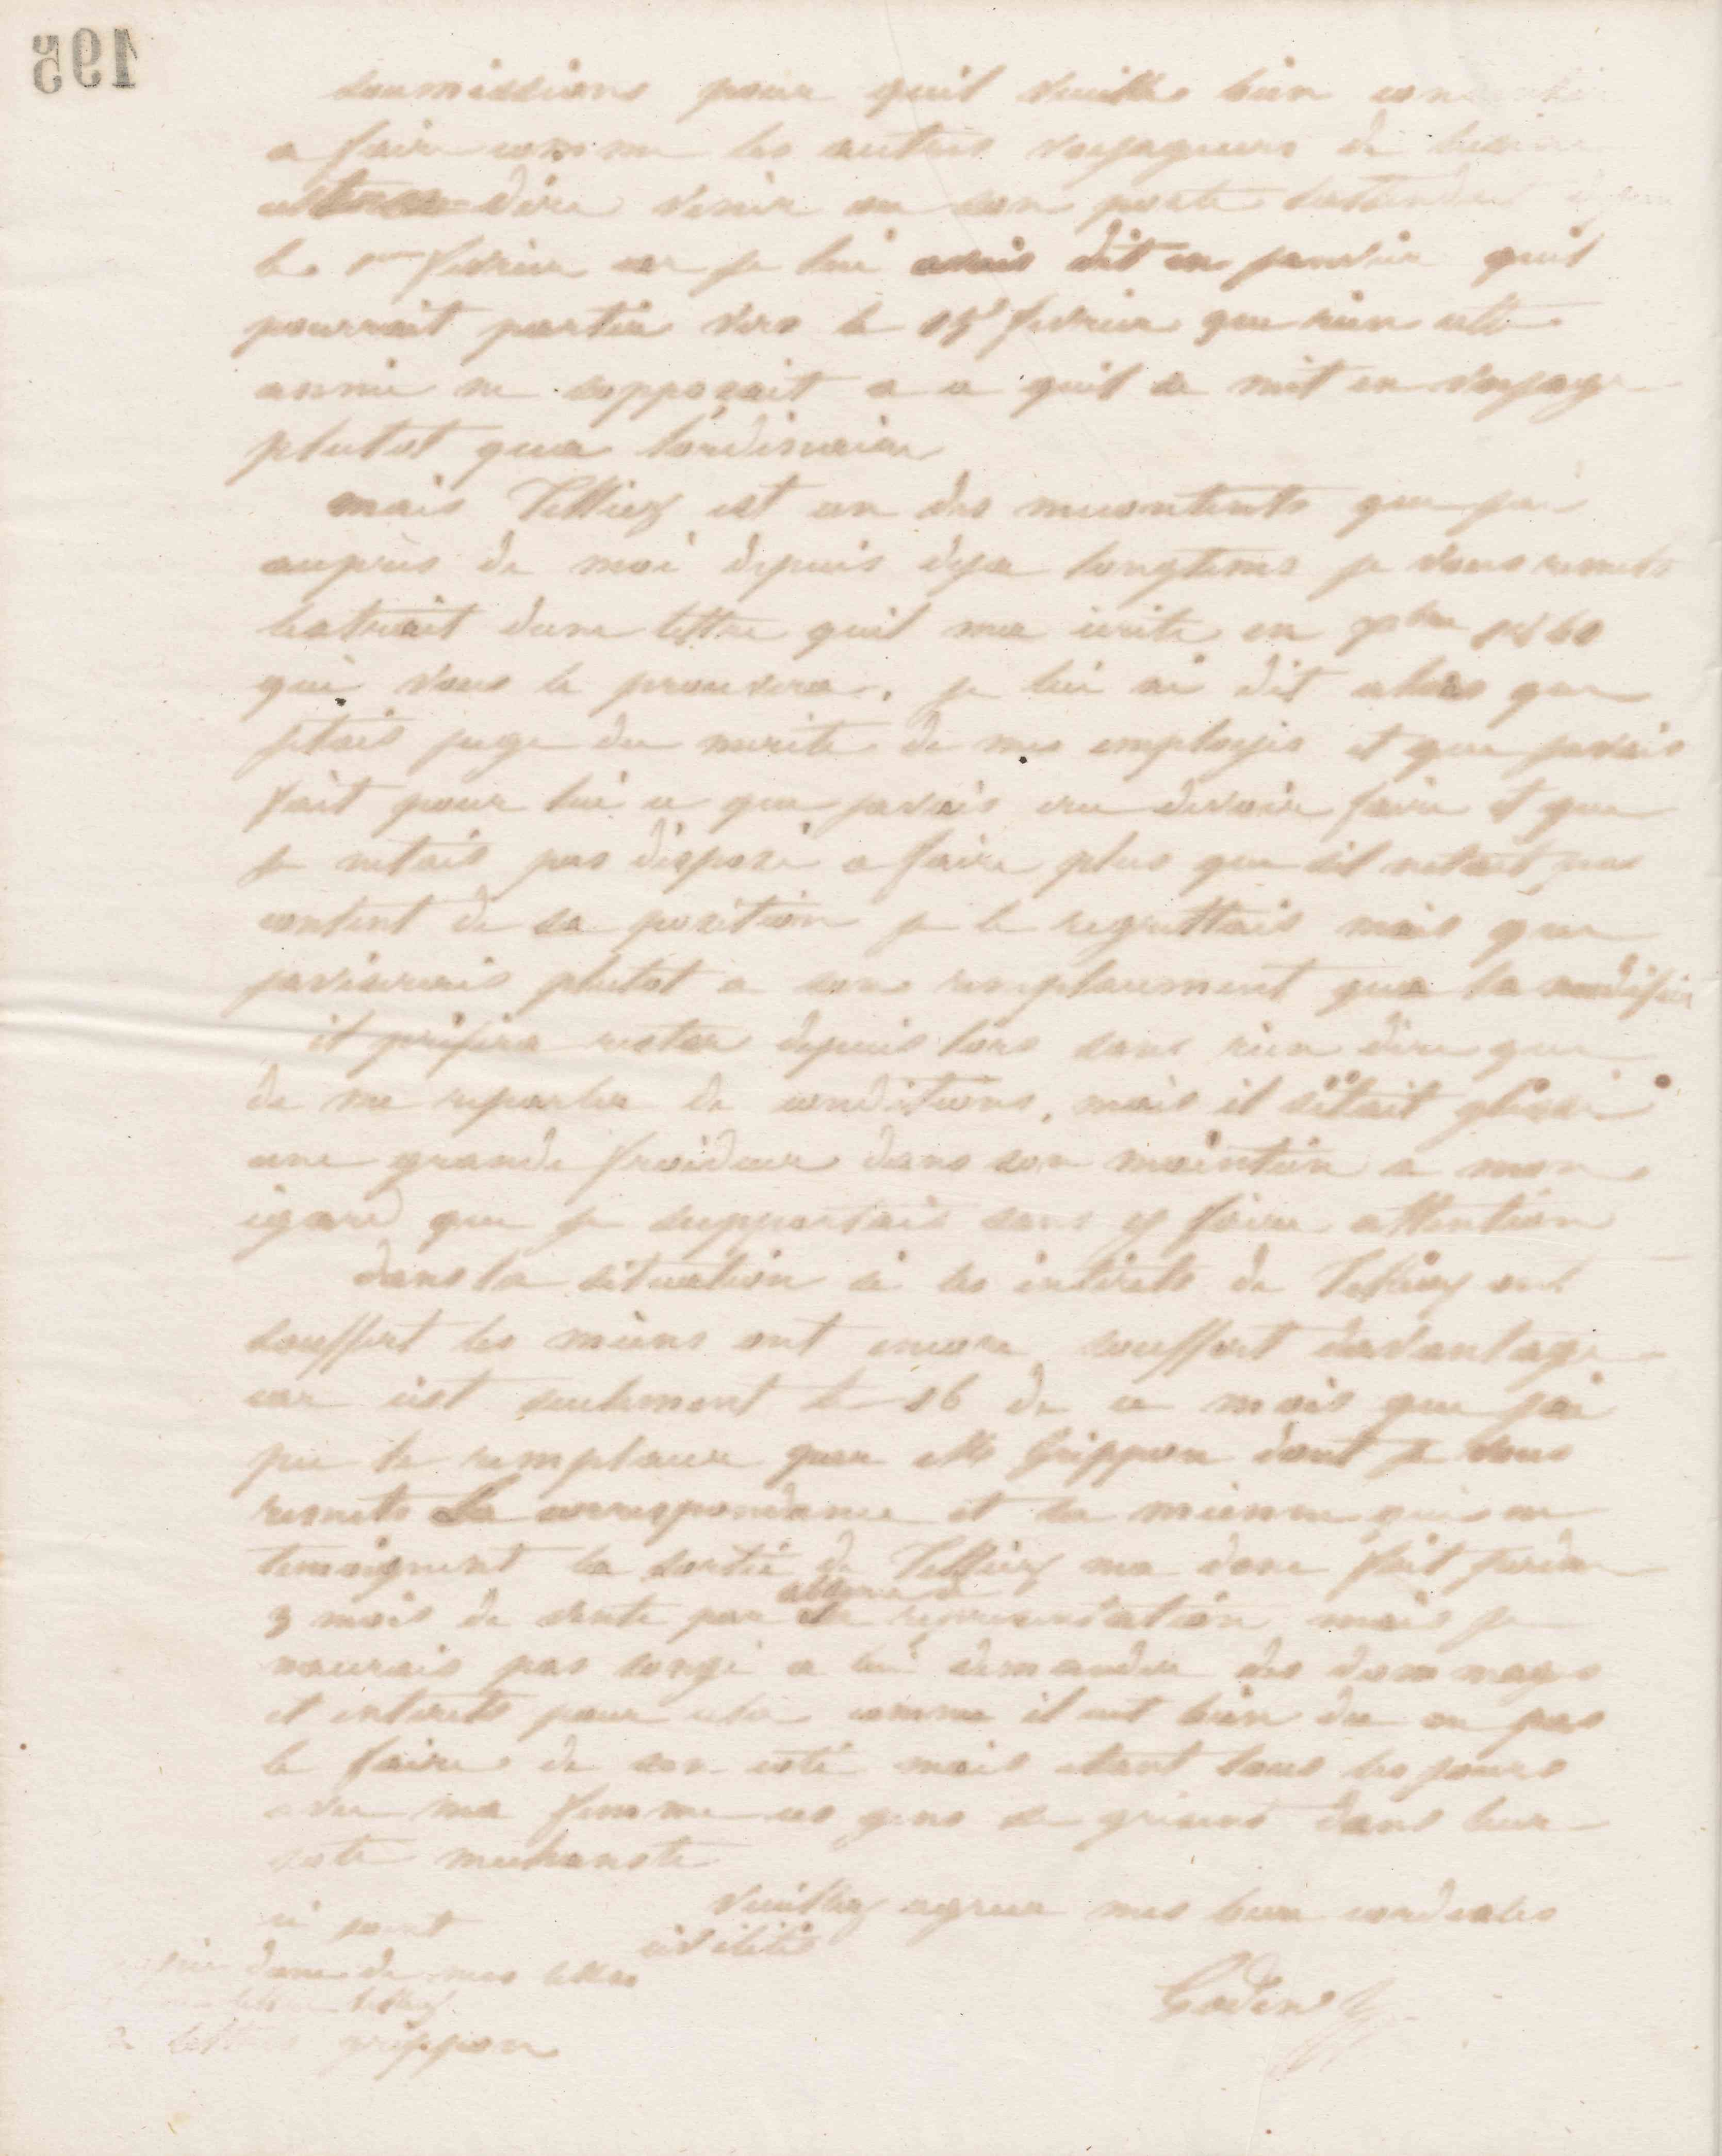 195
soumissions pour quil veuille bien
a faire comme les autres voyageurs de
dire venir a son poste
le 1er fevrier car je lui avais dit en janvier quil
pourrait partir vers le 15 fevrier que rien cette
année ne sopposait a ce quil se mit en voyage
plutot qua lordinaire
mais Telliez est un des mecontents que jai
aupres de moi depuis deja longtems je vous remets
lextrait dune lettre quil ma ecrite en 1860
qui vous le prouvera. je lui ai dit alors que
jetais juge du merite de mes employés et que javais
fait pour lui ce que javais cru devoir faire et que
je netais pas disposé a faire plus que sil netait pas
content de sa position je le regrettais mais que
javiserais plutot a son remplacement qua la modifier
il préféra rester depuis lors sans rien dire que
de me reparler de conditions, mais il sétait glissé
une grande froideur dans son maintien a mon
égard que je supportais sans y faire attention
dans la situation si les intérêts de Telliez ont
souffert les miens ont encore souffert davantage
car cest seulement le 16 de ce mois que jai
pu le remplacer par Mr Grippon dont je vous
remets La correspondance et la mienne qui en
temoignent la sortie de Telliez ma donc fait perdre
3 mois de vente par la representation mais je
naurais pas songé a lui demander des dommages
et interets pour cela comme il eut bien du ne pas
le faire de son coté mais etant tous les jours
avec ma femme ces gens se grisent dans leur
sote mechanste
Veuillez agreer mes bien cordiales
civilités
Godin
ci joint
dune de mes lettres
lettre Telliez
lettres grippon